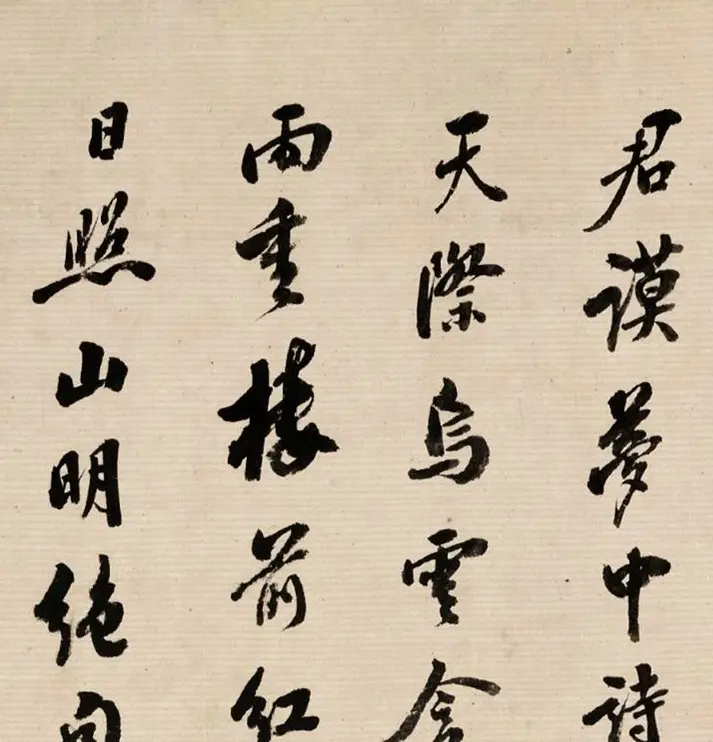 君謨夢中詩
天際烏雲含
雨重樓前紅
日照山明絶句